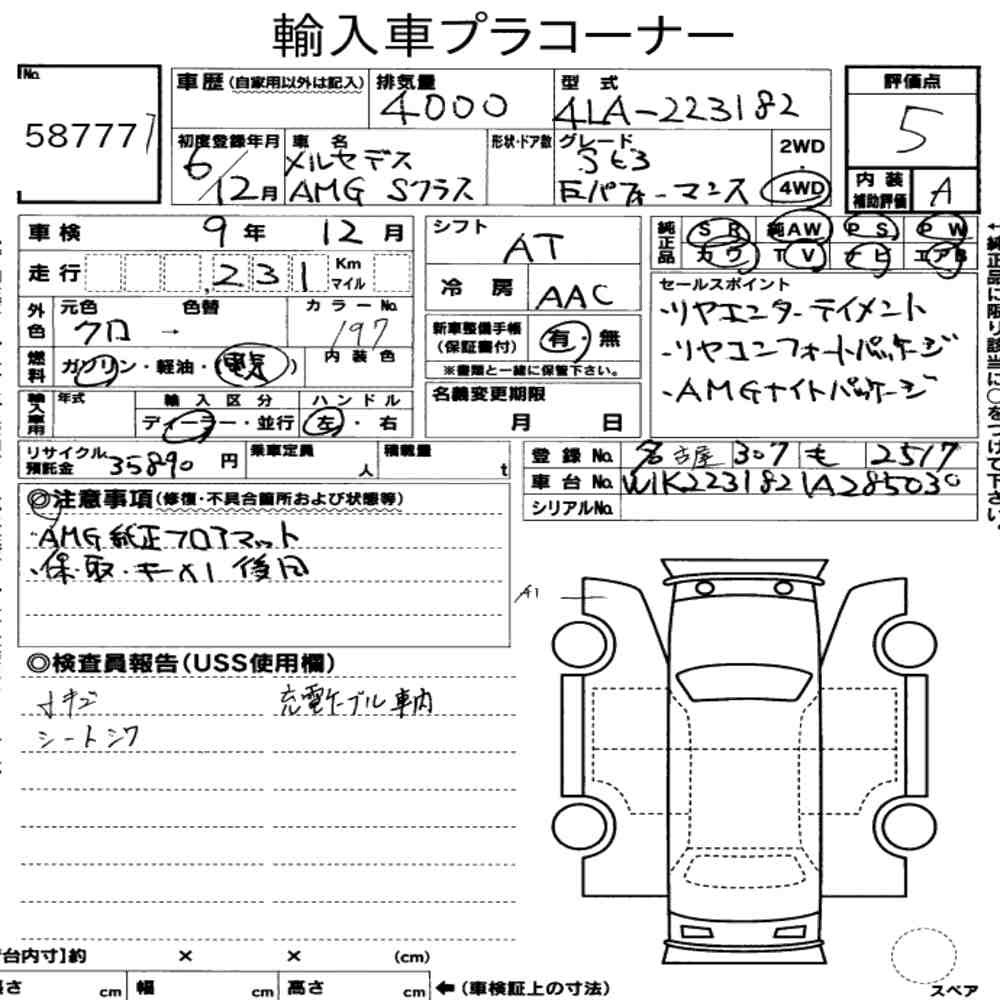 輸入車プラコーナー
No. 58777
車歴(自家用以外は記入) 排気量 4000 型式 4LA-223182 評価点 5
初度登録年月 6/12月 車名 メルセデス AMG Sクラス 形状・ドア数 グレード S63 Eパフォーマンス 2WD・4WD 内装補助評価 A
車検 9年 12月
走行 231 Km マイル
外色 元色 クロ → 色替 カラーNo. 197
燃料 ガソリン・軽油・電気 内装色
輸入車用 年式 輸入区分 ディーラー・並行 ハンドル 左・右
シフト AT
冷房 AAC
新車整備手帳(保証書付) 有・無
※書類と一緒に保管下さい。
名義変更期限 月 日
純正品 SR 純AW PS PW
カワ TV ナビ エアB
セールスポイント
・リヤエンターテイメント
・リヤコンフォートパッケージ
・AMGナイトパッケージ
←純正品に限り該当に○をつけて下さい。
リサイクル預託金 35890円 乗車定員 人 積載量 t
登録No. 名古屋 307 も 2517
車台No. W1K2231821A285030
シリアルNo.
◎注意事項(修復・不具合箇所および状態等)
・AMG純正フロアマット
・保・取・キーX1 後日
A1
◎検査員報告(USS使用欄)
キズ 充電ケーブル車内
シートシワ
台内寸]約 × × (cm)
長さ cm 幅 cm 高さ cm ←(車検証上の寸法)
スペア